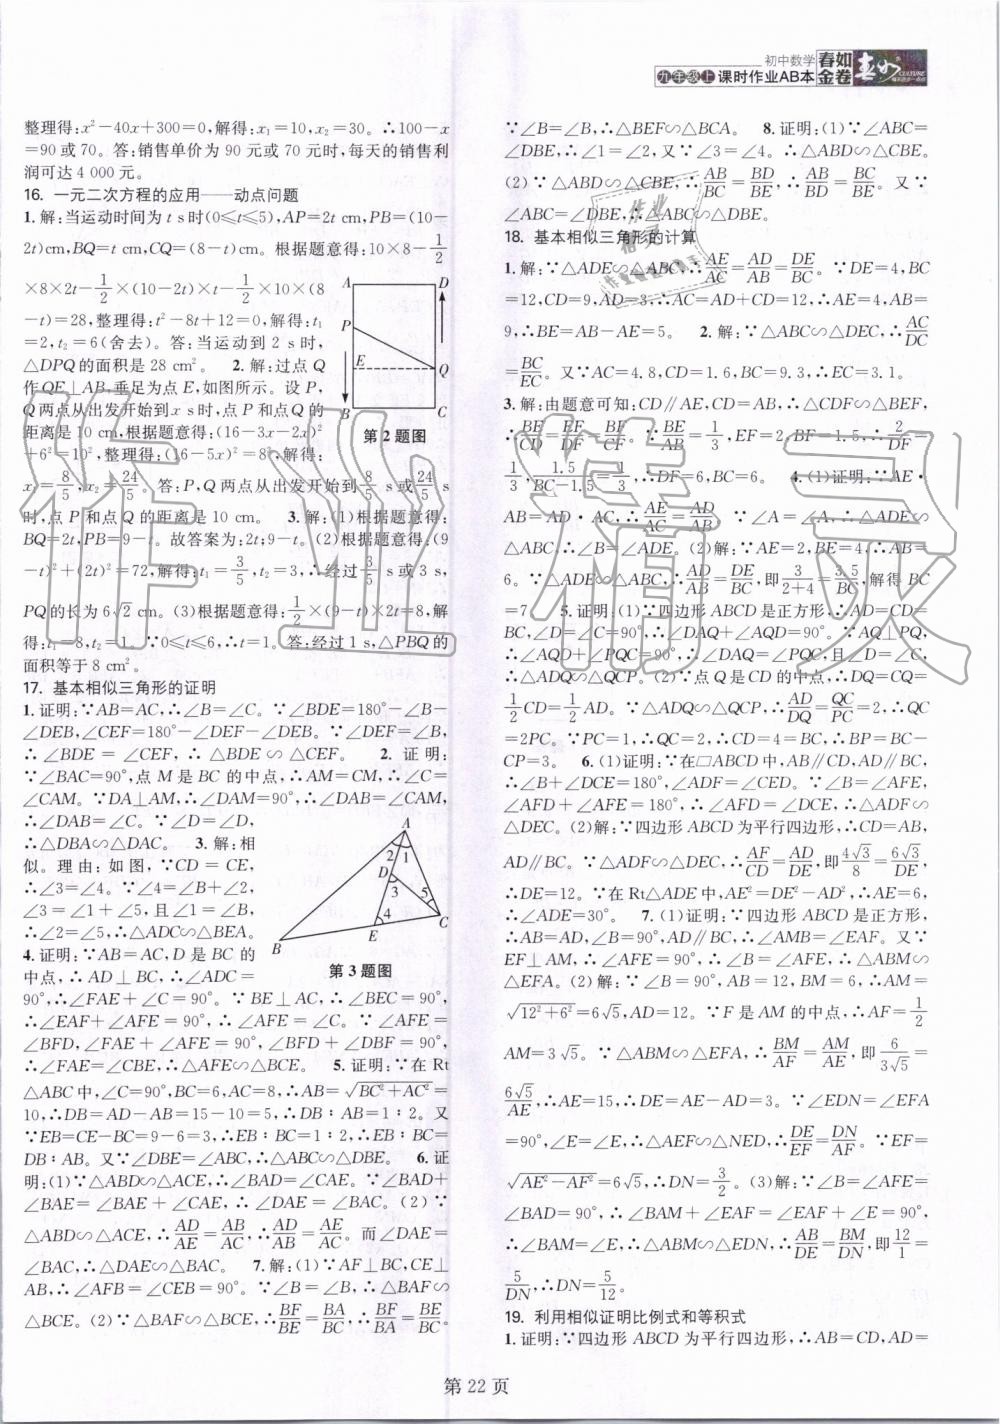 初中数学
九年级上 课时作业AB本
春如金卷
整理得:x²-40x+300=0,解得:x₁=10,x₂=30。∴100-x
=90或70。答:销售单价为90元或70元时,每天的销售利
润可达4 000元。
16. 一元二次方程的应用——动点问题
1.解:当运动时间为t s时(0≤t≤5),AP=2t cm,PB=(10-
2t)cm,BQ=t cm,CQ=(8-t)cm。根据题意得:10×8-1/2
×8×2t-1/2×(10-2t)×t-1/2×10×(8
-t)=28,整理得:t²-8t+12=0,解得:t₁
=2,t₂=6(舍去)。答:当运动到2 s时,
△DPQ的面积是28 cm²。 2.解:过点Q
作QE⊥AB,垂足为点E,如图所示。设P,
Q两点从出发开始到x s时,点P和点Q的
距离是10 cm,根据题意得:(16-3x-2x)²
+6²=10²,整理得:(16-5x)²=8²,解得:
x₁=8/5,x₂=24/5。答:P,Q两点从出发开始到8/5 s或24/5 s
时,点P和点Q的距离是10 cm。 3.解:(1)根据题意得:
BQ=2t,PB=9-t。故答案为:2t;9-t。(2)根据题意得:(9
-t)²+(2t)²=72,解得:t₁=3/5,t₂=3,∴经过3/5 s或3 s,
PQ的长为6√2 cm。(3)根据题意得:1/2×(9-t)×2t=8,解
得:t₁=8,t₂=1。∵0≤t≤6,∴t=1。答:经过1 s,△PBQ的
面积等于8 cm²。
A D P E Q B C
第2题图
17. 基本相似三角形的证明
1.证明:∵AB=AC,∴∠B=∠C。∵∠BDE=180°-∠B-
∠DEB,∠CEF=180°-∠DEF-∠DEB。∵∠DEF=∠B,
∴∠BDE=∠CEF,∴△BDE∽△CEF。 2.证明:
∵∠BAC=90°,点M是BC的中点,∴AM=CM,∴∠C=
∠CAM。∵DA⊥AM,∴∠DAM=90°,∴∠DAB=∠CAM,
∴∠DAB=∠C。∵∠D=∠D,
∴△DBA∽△DAC。 3.解:相
似。理由:如图,∵CD=CE,
∴∠3=∠4。∵∠2+∠4=∠1+∠2,
∠3=∠1+∠5,且∠1=∠2,
∴∠2=∠5,∴△ADC∽△BEA。
A 2 1 D 3 5 4 C B E
第3题图
4.证明:∵AB=AC,D是BC的
中点,∴AD⊥BC,∴∠ADC=
90°,∴∠FAE+∠C=90°。∵BE⊥AC,∴∠BEC=90°,
∴∠EAF+∠AFE=90°,∴∠AFE=∠C。∵∠AFE=
∠BFD,∠FAE+∠AFE=90°,∠BFD+∠DBF=90°,∴
∠FAE=∠CBE,∴△AFE∽△BCE。 5.证明:∵在Rt
△ABC中,∠C=90°,BC=6,AC=8,∴AB=√(BC²+AC²)=
10,∴DB=AD-AB=15-10=5,∴DB∶AB=1∶2。又
∵EB=CE-BC=9-6=3,∴EB∶BC=1∶2,∴EB∶BC=
DB∶AB。又∵∠DBE=∠ABC,∴△ABC∽△DBE。 6.证
明:(1)∵△ABD∽△ACE,∴∠BAD=∠CAE。∵∠BAD+
∠BAE=∠BAE+∠CAE,∴∠DAE=∠BAC。(2)∵
△ABD∽△ACE,∴AD/AE=AB/AC,∴AD/AB=AE/AC。而∠DAE=
∠BAC,∴△DAE∽△BAC。 7.解:(1)∵AF⊥BC,CE⊥
AB,∴∠AFB=∠CEB=90°。∵∠B=∠B,∴△BAF∽
△BCE。(2)∵△BAF∽△BCE,∴BF/BE=BA/BC,∴BF/BA=BE/BC。
∵∠B=∠B,∴△BEF∽△BCA。 8.证明:(1)∵∠ABC=
∠DBE,∴∠1=∠2。又∵∠3=∠4。∴△ABD∽△CBE。
(2)∵△ABD∽△CBE,∴AB/BC=BD/BE,∴AB/BD=BC/BE。又∵
∠ABC=∠DBE,∴△ABC∽△DBE。
18. 基本相似三角形的计算
1.解:∵△ADE∽△ABC,∴AE/AC=AD/AB=DE/BC。∵DE=4,BC
=12,CD=9,AD=3,∴AC=AD+CD=12,∴AE=4,AB=
9,∴BE=AB-AE=5。 2.解:∵△ABC∽△DEC,∴AC/DC=
BC/EC。又∵AC=4.8,CD=1.6,BC=9.3,∴EC=3.1。
3.解:由题意可知:CD∥AE,CD=AB,∴△CDF∽△BEF,
∴BF/CF=EF/DF,∴BF/BC=BE/AE=1/3,EF=2,BF=1.5,∴2/DF=
1/3,1.5/(BC-1.5)=1/3,∴DF=6,BC=6。 4.(1)证明:∵AE·
AB=AD·AC,∴AE/AC=AD/AB。∵∠A=∠A,∴△ADE∽
△ABC,∴∠B=∠ADE。(2)解:∵AE=2,BE=4,∴AB=
6。∵△ADE∽△ABC,∴AD/AB=DE/BC,即3/(2+4)=3.5/BC,解得BC
=7。 5.证明:(1)∵四边形ABCD是正方形,∴AD=CD=
BC,∠C=∠D=90°,∴∠DAQ+∠AQD=90°。∵AQ⊥PQ,
∴∠AQD+∠PQC=90°,∴∠DAQ=∠PQC,且∠C=∠D,
∴△ADQ∽△QCP。(2)∵点Q是CD的中点,∴DQ=QC=
1/2CD=1/2AD。∵△ADQ∽△QCP,∴AD/DQ=QC/PC=2,∴QC
=2PC。∵PC=1,∴QC=2,∴CD=4=BC,∴BP=BC-
CP=3。 6.(1)证明:∵在□ABCD中,AB∥CD,AD∥BC,
∴∠B+∠DCE=180°,∠ADF=∠CED。∵∠B=∠AFE,
∠AFD+∠AFE=180°,∴∠AFD=∠DCE,∴△ADF∽
△DEC。(2)解:∵四边形ABCD为平行四边形,∴CD=AB,
AD∥BC。∵△ADF∽△DEC,∴AF/CD=AD/DE,即4√3/8=6√3/DE,
∴DE=12。∵在Rt△ADE中,AE²=DE²-AD²,∴AE=6,
∴∠ADE=30°。 7.(1)证明:∵四边形ABCD是正方形,
∴AB=AD,∠B=90°,AD∥BC,∴∠AMB=∠EAF。又∵
EF⊥AM,∴∠AFE=90°,∴∠B=∠AFE,∴△ABM∽
△EFA。(2)解:∵∠B=90°,AB=12,BM=6,∴AM=
√(12²+6²)=6√5,AD=12。∵F是AM的中点,∴AF=1/2
AM=3√5。∵△ABM∽△EFA,∴BM/AF=AM/AE,即6/(3√5)=
6√5/AE,∴AE=15,∴DE=AE-AD=3。∵∠EDN=∠EFA
=90°,∠E=∠E,∴△AEF∽△NED,∴DE/EF=DN/AF。∵EF=
√(AE²-AF²)=6√5,∴DN=3/2。(3)解:∵∠B=∠AFE=
∠BAD=90°,∴∠BAM+∠EAF=∠EAF+∠E=90°,
∴∠BAM=∠E,∴△ABM∽△EDN,∴AB/DE=BM/DN,即12/1=
5/DN,∴DN=5/12。
19. 利用相似证明比例式和等积式
1.证明:∵四边形ABCD为平行四边形,∴AB=CD,AD=
第 22 页
作业精灵